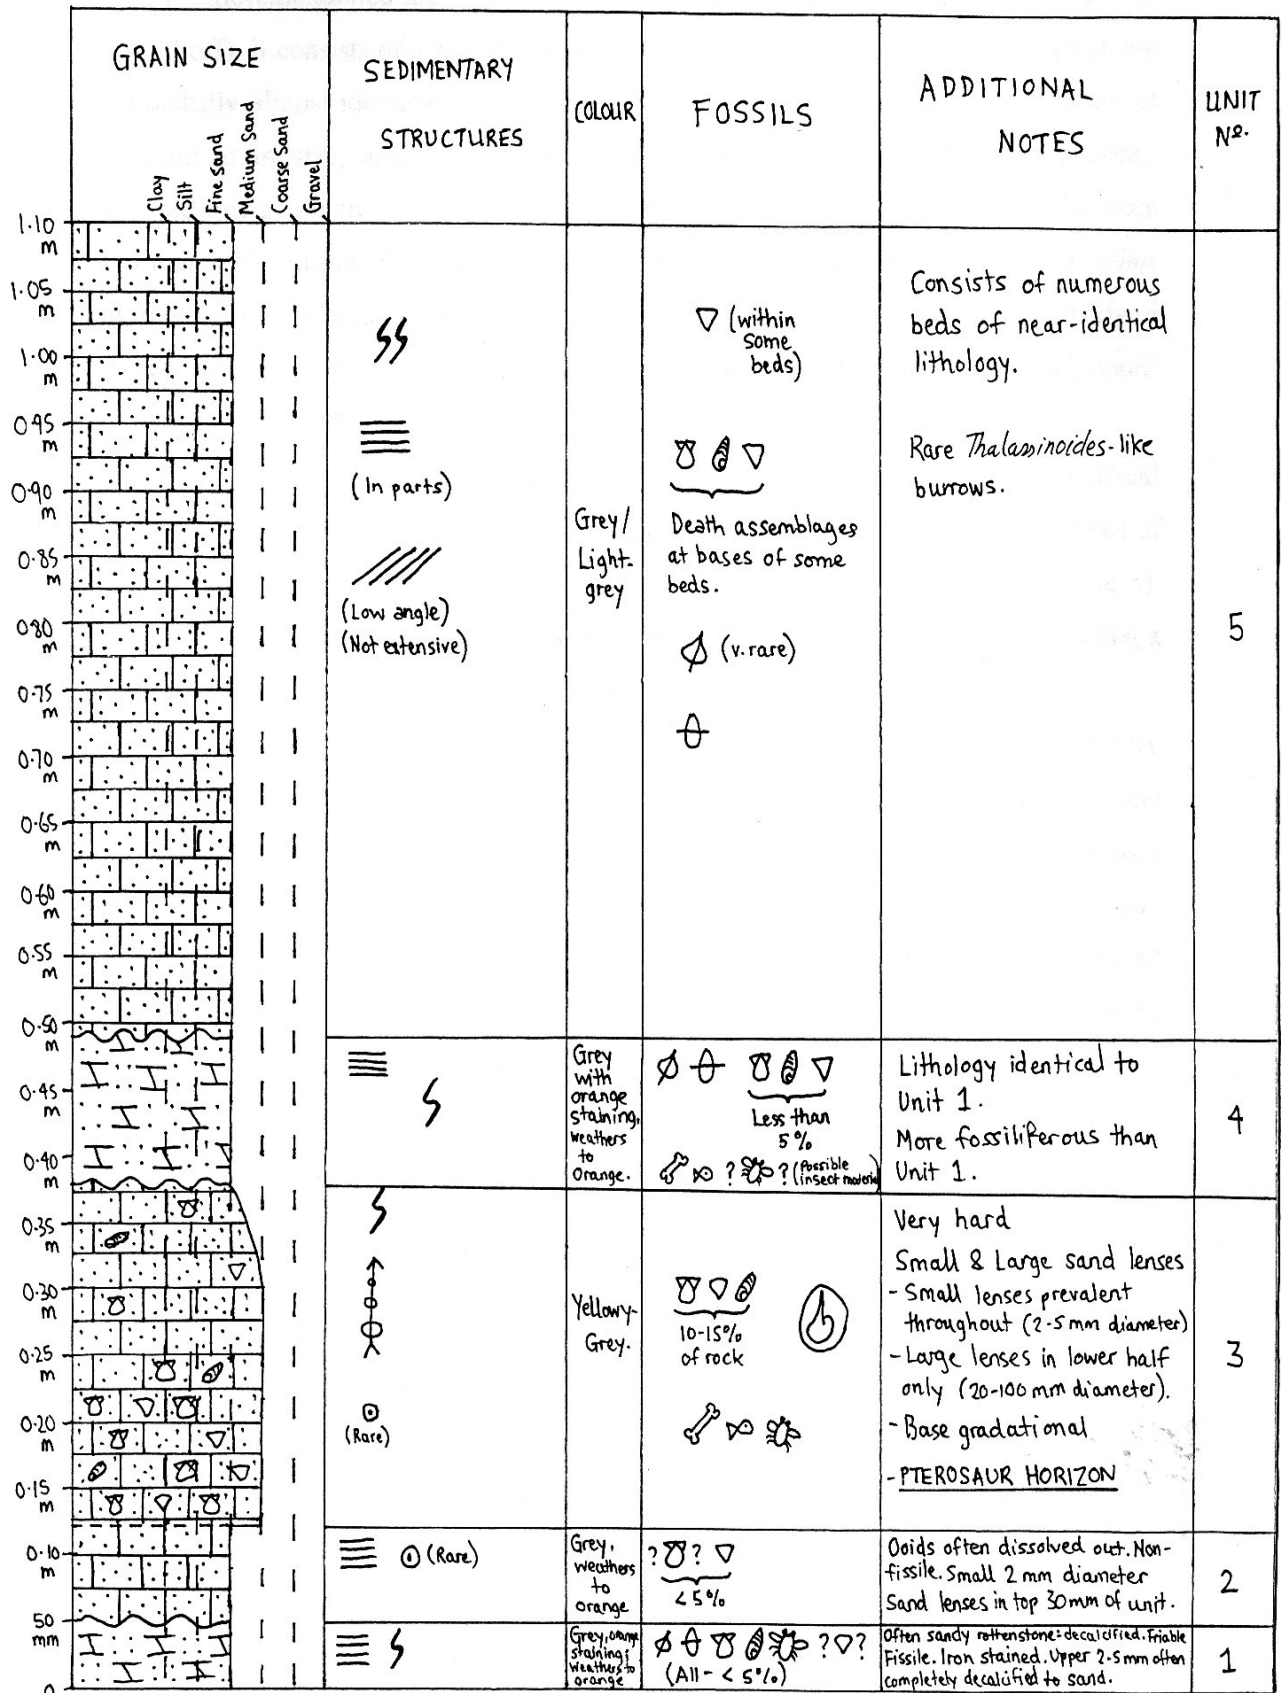 GRAIN SIZE
Clay
Silt
Fine Sand
Medium Sand
Coarse Sand
Gravel
SEDIMENTARY
STRUCTURES
COLOUR
FOSSILS
ADDITIONAL
NOTES
UNIT
Nº.
1.10
m
1.05
m
1.00
m
0.95
m
0.90
m
0.85
m
0.80
m
0.75
m
0.70
m
0.65
m
0.60
m
0.55
m
0.50
m
0.45
m
0.40
m
0.35
m
0.30
m
0.25
m
0.20
m
0.15
m
0.10
m
50
mm
0
(In parts)
(Low angle)
(Not extensive)
Grey/
Light-
grey
(within
some
beds)
Death assemblages
at bases of some
beds.
(v. rare)
Consists of numerous
beds of near-identical
lithology.
Rare Thalassinoides-like
burrows.
5
Grey
with
orange
staining,
weathers
to
Orange.
Less than
5%
? ? (Possible
insect material)
Lithology identical to
Unit 1.
More fossiliferous than
Unit 1.
4
(Rare)
Yellowy-
Grey.
10-15%
of rock
Very hard
Small & Large sand lenses
- Small lenses prevalent
throughout (2-5 mm diameter)
- Large lenses in lower half
only (20-100 mm diameter).
- Base gradational
- PTEROSAUR HORIZON
3
(Rare)
Grey,
weathers
to
orange
? ?
<5%
Ooids often dissolved out. Non-
fissile. Small 2 mm diameter
Sand lenses in top 30mm of unit.
2
Grey, orange
staining;
weathers to
orange
? ?
(All - < 5%)
Often sandy rottenstone = decalcified. Friable
Fissile. Iron stained. Upper 2-5mm often
completely decalcified to sand.
1